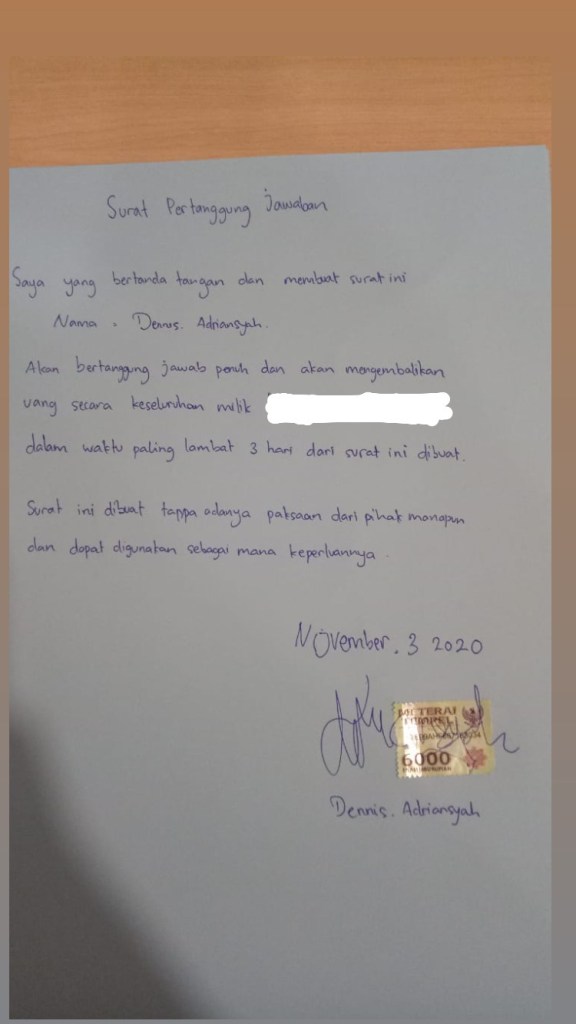 Surat Pertanggung jawaban
Saya yang bertanda tangan dan membuat surat ini
Nama . Dennis. Adriansyah.
Akan bertanggung jawab penuh dan akan mengembalikan
uang secara keseluruhan milik
dalam waktu paling lambat 3 hari dari surat ini dibuat.
Surat ini dibuat tanpa adanya paksaan dari pihak manapun
dan dapat digunakan sebagai mana keperluannya.
November. 3 2020
METERAI
TEMPEL
6000
Dennis. Adriansyah